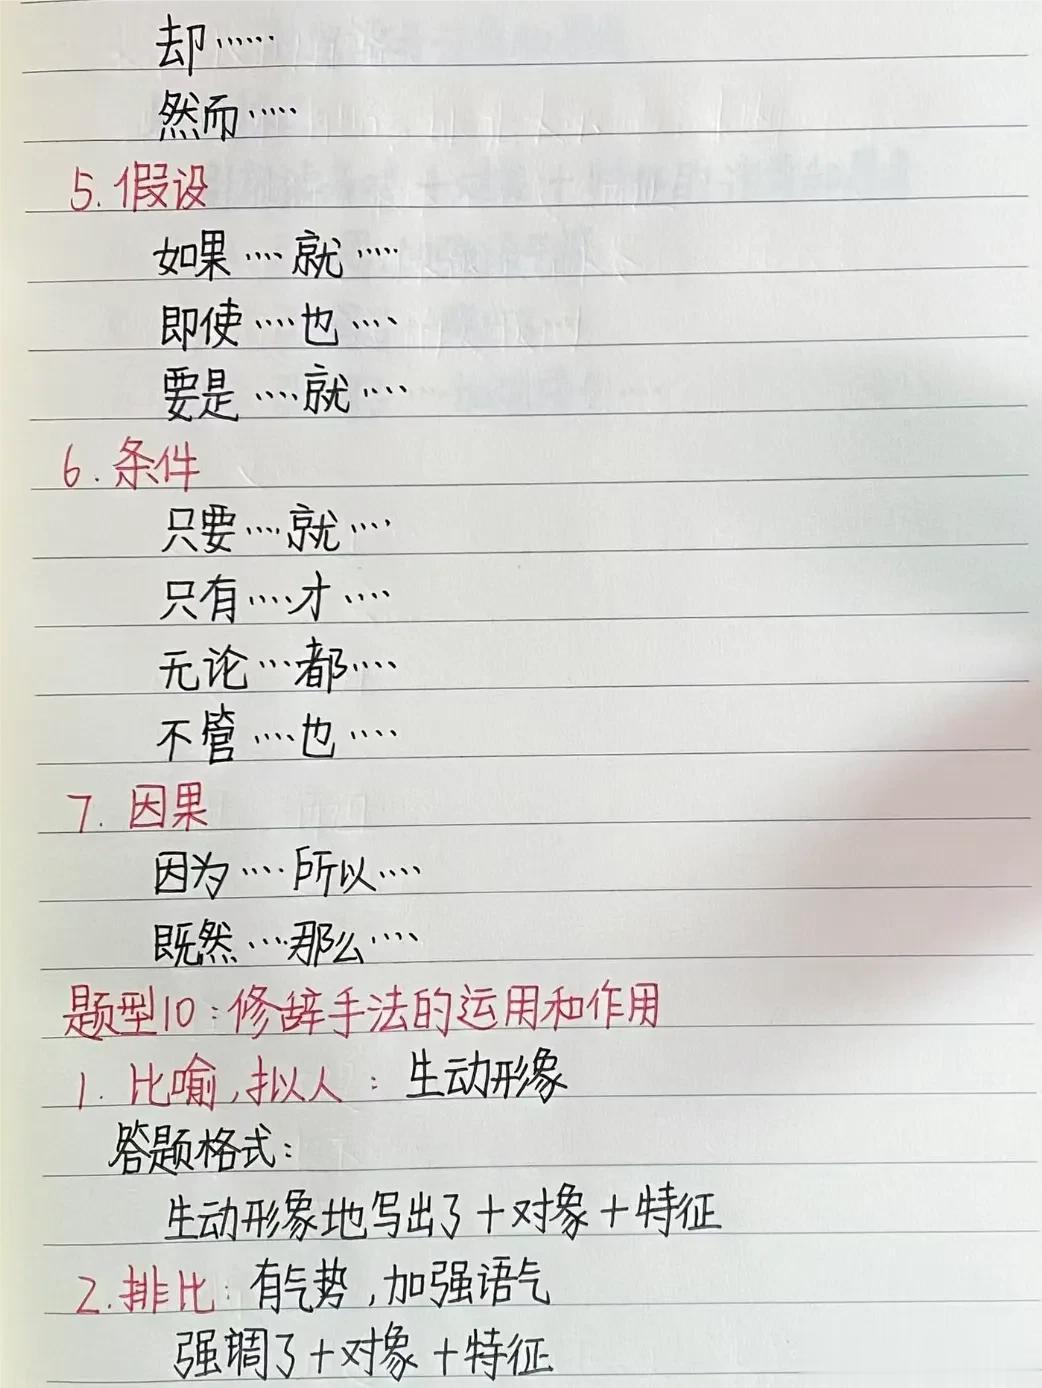 却……
然而……
5. 假设
如果……就……
即使……也……
要是……就……
6. 条件
只要……就……
只有……才……
无论……都……
不管……也……
7. 因果
因为……所以……
既然……那么……
题型10:修辞手法的运用和作用
1. 比喻,拟人: 生动形象
答题格式:
生动形象地写出了+对象+特征
2.排比: 有气势,加强语气
强调了+对象+特征